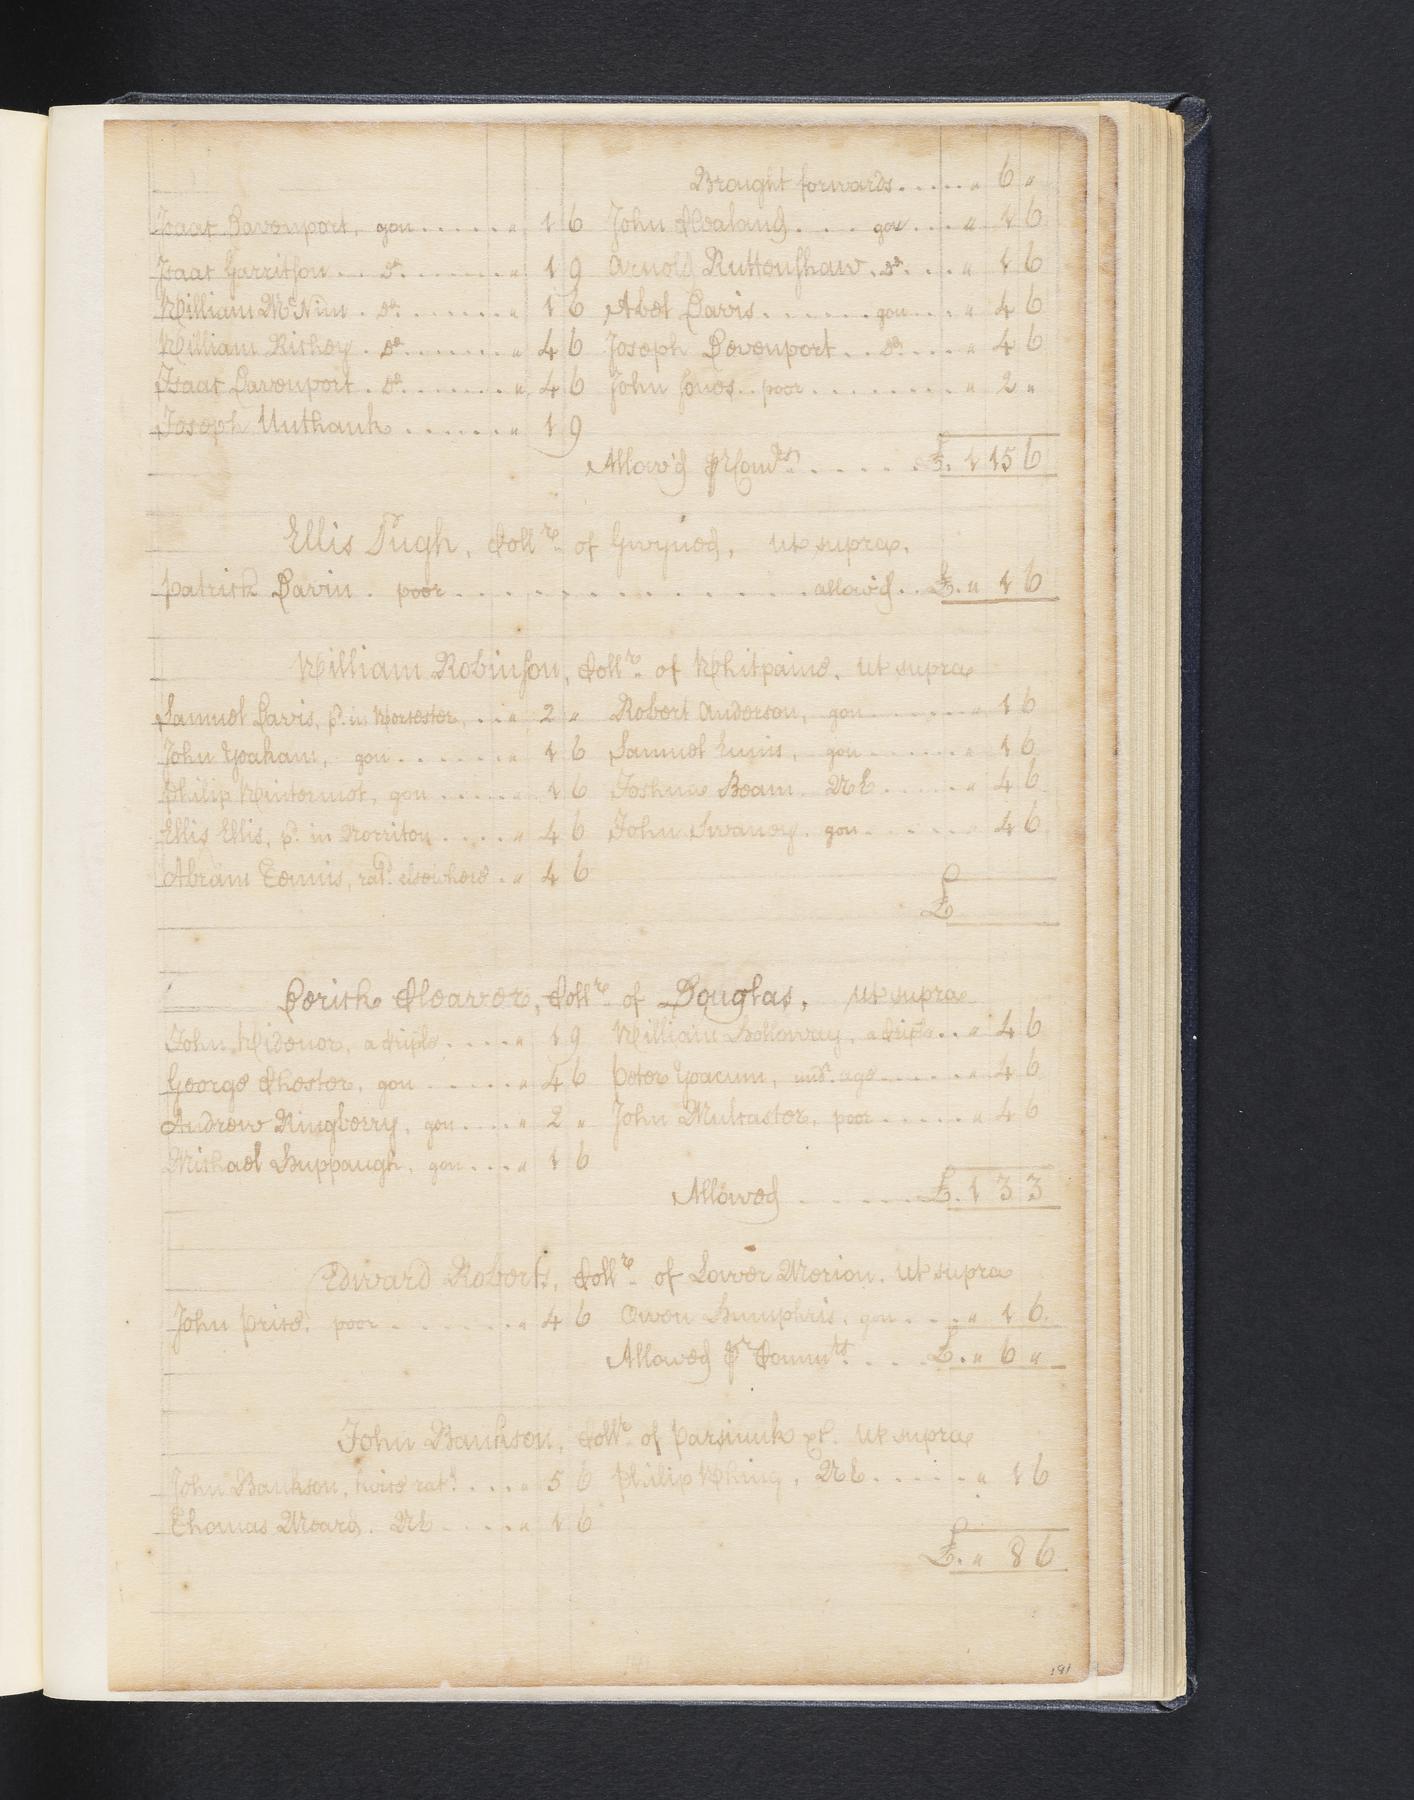 Brought forwards . . . . . " 6 "
Isaac Davenport, gon . . . . . " 1 6 John Cloaland . . . gon . . . " 1 6
Isaac Garritson . . do. . . . . . . " 1 9 Arnold Ruttenshaw . do. . . . " 1 6
William McNim . do. . . . . . . . " 1 6 Abel Davis . . . . . . . gon . . . " 4 6
William Richey . do. . . . . . . " 4 6 Joseph Devenport . . do. . . . . " 4 6
Isaac Davenport . do. . . . . . . " 4 6 John Jones . . poor . . . . . . . . " 2 "
Joseph Unthank . . . . . . " 1 9
Allow'd pr Comrs . . . . . £. 1 15 6
Ellis Pugh, Collr. of Gwyned, ut supra.
Patrick Davin . poor . . . . . . . . . . . . . . allow'd . . £. " 1 6
William Robinson, Collr. of Whitpaine, ut supra
Samuel Davis, pd. in Worcester, . . . " 2 " Robert Anderson, gon . . . . . . " 1 6
John Yoakam, gon . . . . . . . " 1 6 Samuel Ennis, gon . . . . . . " 1 6
Philip Wintermot, gon . . . . . " 1 6 Joshua Beam NE . . . . . " 4 6
Ellis Ellis, pd. in Norriton . . . . " 4 6 John Swaney. gon . . . . . " 4 6
Abram Tennis, ratd. elsewhere . " 4 6
£
Derick Cleaver, Collr. of Douglas, ut supra
John Widenor, a Criple . . . . " 1 9 William Holloway, a Criple . . " 4 6
George Chester, gon . . . . . " 4 6 Peter Yoacum, undr. age . . . . . . " 4 6
Andrew Ringberry, gon . . . . " 2 " John Mulcaster, poor . . . . . " 4 6
Michael Huppaugh, gon . . . " 1 6
Allowed . . . . . £. 1 3 3
Edward Roberts, Collr. of Lower Merion, ut supra
John Price, poor . . . . . . . " 4 6 Owen Humphris, gon . . . " 1 6
Allowed pr Commrs. . . . £. " 6 "
John Bankson, Collr. of Parsiunk &c. ut supra
John Bankson, twice ratd. . . . " 5 6 Philip Whing, NE . . . . . . " 1 6
Thomas Meard. NE . . . . . " 1 6
£. " 8 6
191